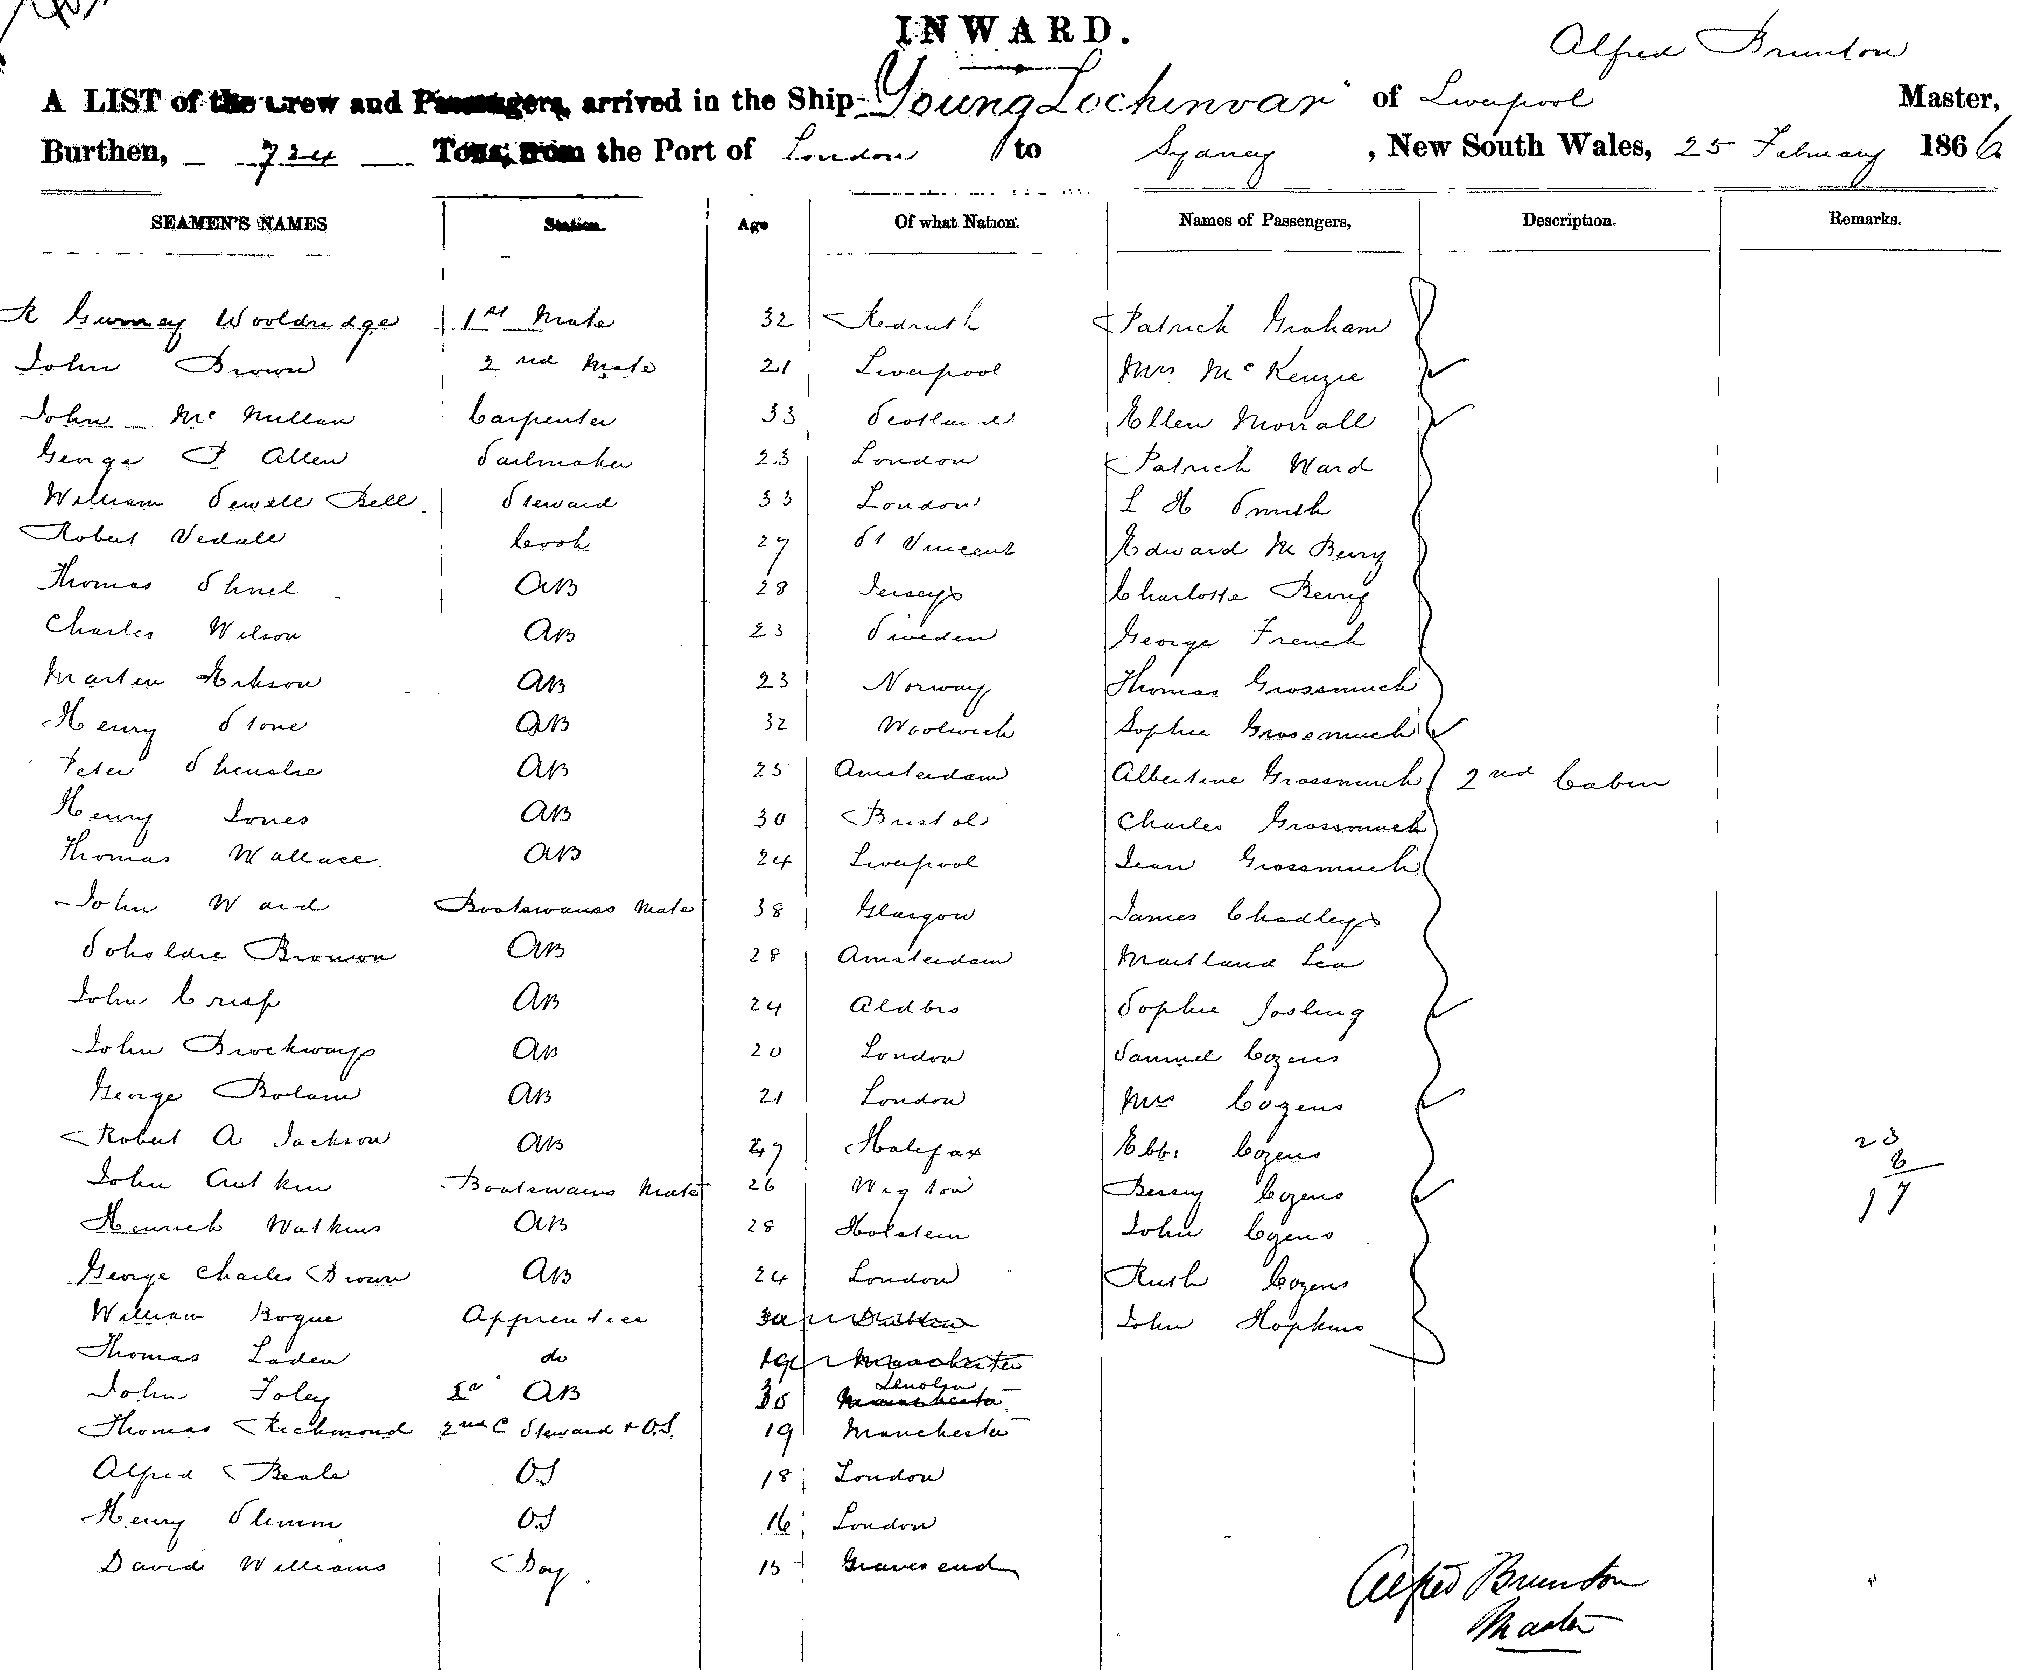 INWARD.
Alfred Brunton
A LIST of the Crew and Passengers, arrived in the Ship "Young Lochinvar" of Liverpool Master,
Burthen, 724 Tons, from the Port of London to Sydney, New South Wales, 25 February 1866
SEAMEN'S NAMES Station. Age Of what Nation. Names of Passengers, Description. Remarks.
R Gurney Wooldridge 1st Mate 32 Redruth Patrick Graham
John Brown 2nd Mate 21 Liverpool Mrs McKenzie
John McMillan Carpenter 33 Scotland Ellen Morrall
George P Allen Sailmaker 23 London Patrick Ward
William Sewell Bell Steward 33 London L H Smith
Robert Vedall Cook 27 St Vincent Edward M Berry
Thomas Shnel AB 28 Jersey Charlotte Berry
Charles Wilson AB 23 Sweden George French
Marten Erikson AB 23 Norway Thomas Grossmuck
Henry Stone AB 32 Woolwich Sophie Grossmuck
Peter AB 25 Amsterdam Albertine Grossmuck 2nd Cabin
Henry Jones AB 30 Bristol Charles Grossmuck
Thomas Wallace AB 24 Liverpool Jean Grossmuck
John Ward Boatswains Mate 38 Glasgow James Chadley
AB 28 Amsterdam Maitland Lea
John Crisp AB 24 Aldbro Sophie Josling
John Brockway AB 20 London Samuel Cozens
George Bolam AB 21 London Mrs Cozens
Robert A Jackson AB 27 Halifax Ebb: Cozens 23
John Aitkin Boatswains Mate 26 Wigton Bessy Cozens 6
17
Henrich Watkins AB 28 Holstein John Cozens
George Charles Brown AB 24 London Ruth Cozens
William Bogue Apprentice John Hopkins
Thomas Laden do 19 Manchester
John Foley AB 30 Lincoln Manchester
Thomas Richmond 2nd C Steward & O.S. 19 Manchester
Alfred Beale OS 18 London
Henry Slemm OS 16 London
David Williams Boy 15 Gravesend
Alfred Brunton
Master